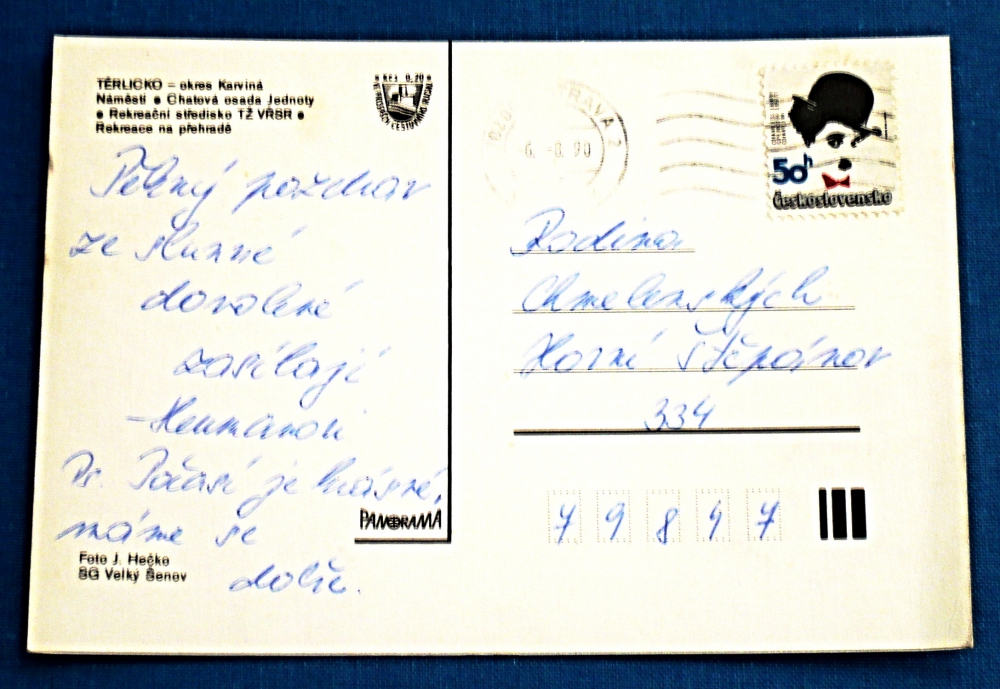 TĚRLICKO – okres Karviná
Náměstí • Chatová osada Jednoty
• Rekreační středisko TŽ VŘSR •
Rekreace na přehradě
Kčs 0,20
Pěkný pozdrav
ze slunné
dovolené
zasílají
Heumanovi
Ps. Počasí je krásné,
máme se
dobře.
PANORAMA
Foto J. Hečko
SG Velký Šenov
6. -8. 90
50h
Československo
Rodina
Chmelenských
Horní Štěpánov
334
79847